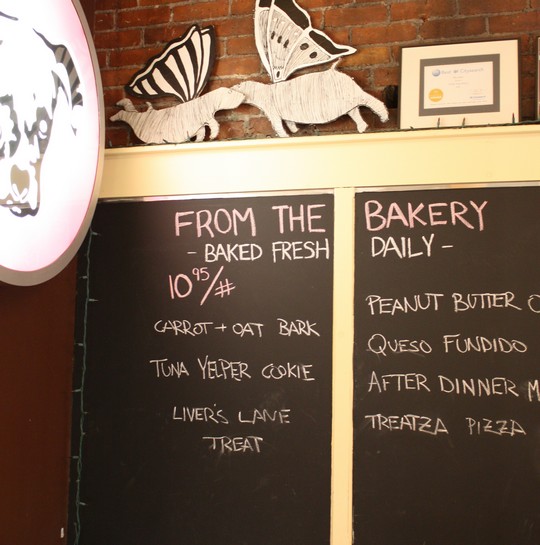 FROM THE BAKERY
- BAKED FRESH DAILY -
10 95/#
CARROT + OAT BARK
TUNA YELPER COOKIE
LIVER'S LANE
TREAT
PEANUT BUTTER
QUESO FUNDIDO
AFTER DINNER
TREATZA PIZZA